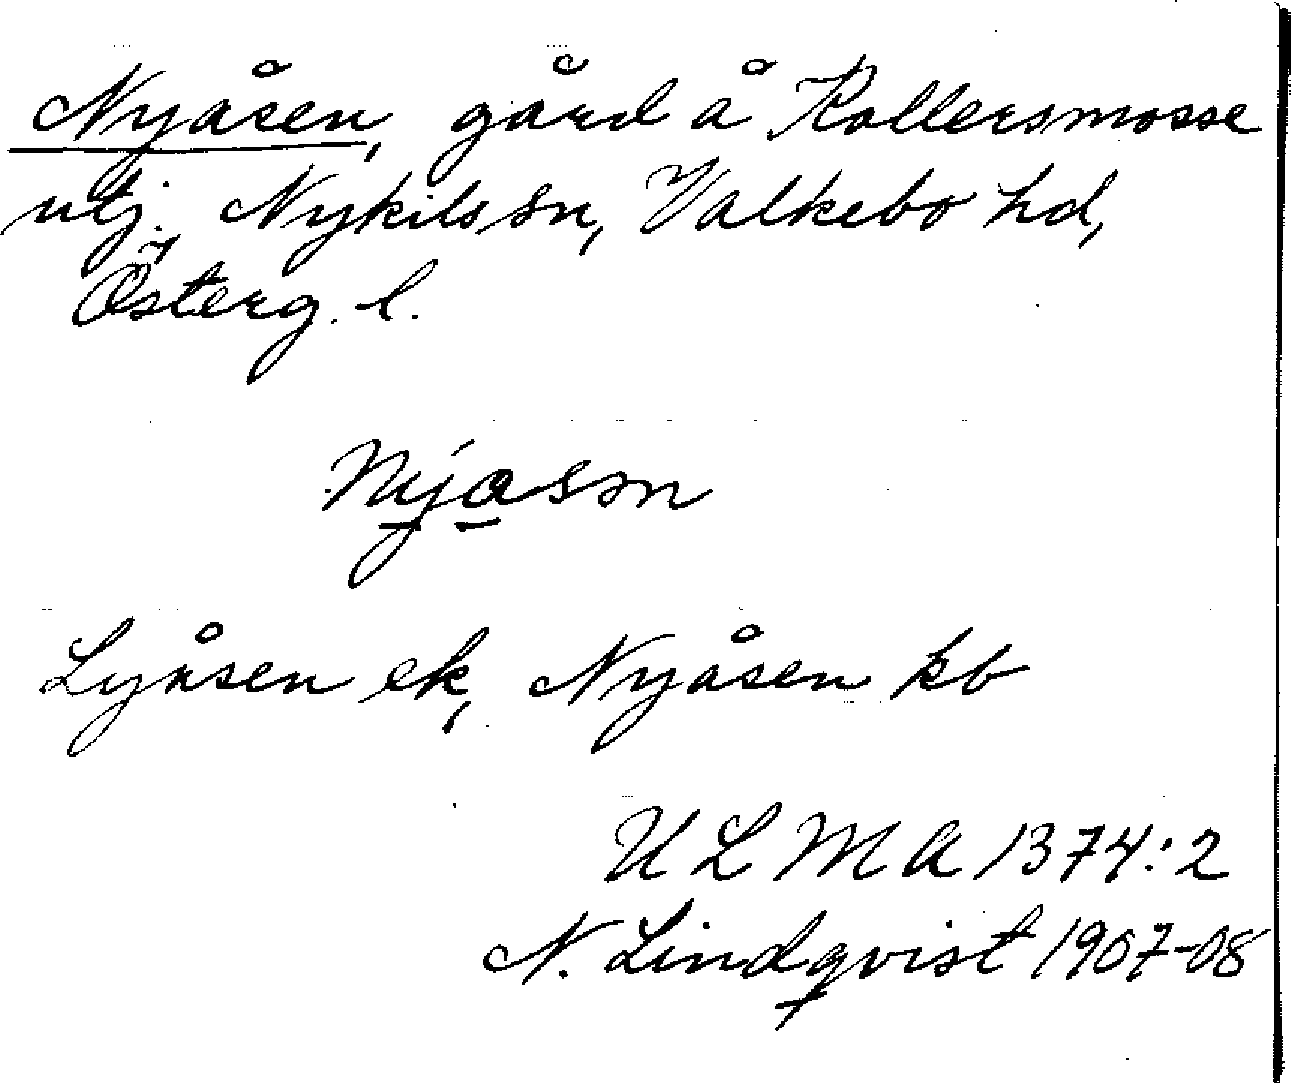 Nyåsen, gård å Kollersmosse
utj. Nykils sn, Valkebo hd,
Österg. l.
Nyåsen ek, Nyåsen kb
U L M A 1374:2
N. Lindqvist 1907-08